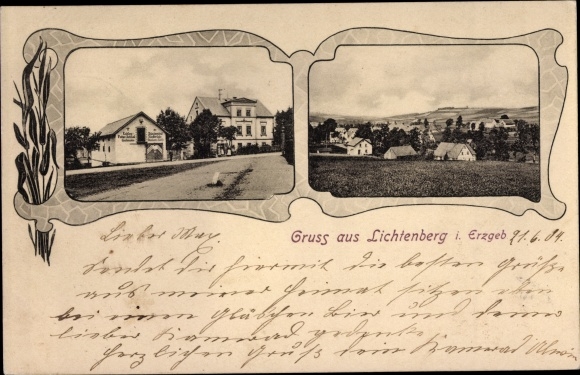 Gruss aus Lichtenberg i. Erzgeb 21.6.04.
Lieber Max.
Sendet dir hiermit die besten Grüße
aus meiner Heimat sitzen eben
bei einem Gläschen Bier und deiner
lieber Kamerad gedenke
herzlichen Gruß dein Kamerad Alwin